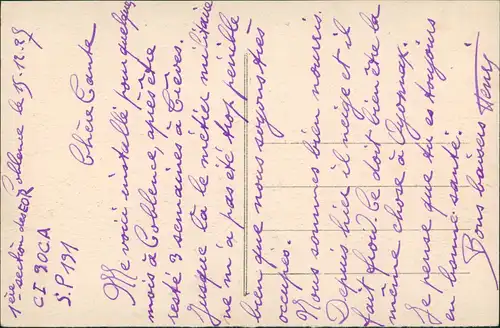 1ère section des EOR
CI 90CA
S.P 191
Coblence le 15.12.29
Chère Tante
Me voici installé pour quelques
mois à Coblence, après être
resté 3 semaines à Trèves.
Jusque là le métier militaire
ne m'a pas été trop pénible
bien que nous soyons très
occupés.
Nous sommes bien nourris.
Depuis hier il neige et il
fait froid. Ce doit bien être la
même chose à Oyonnax.
Je pense que tu es toujours
en bonne santé.
Bons baisers Henri